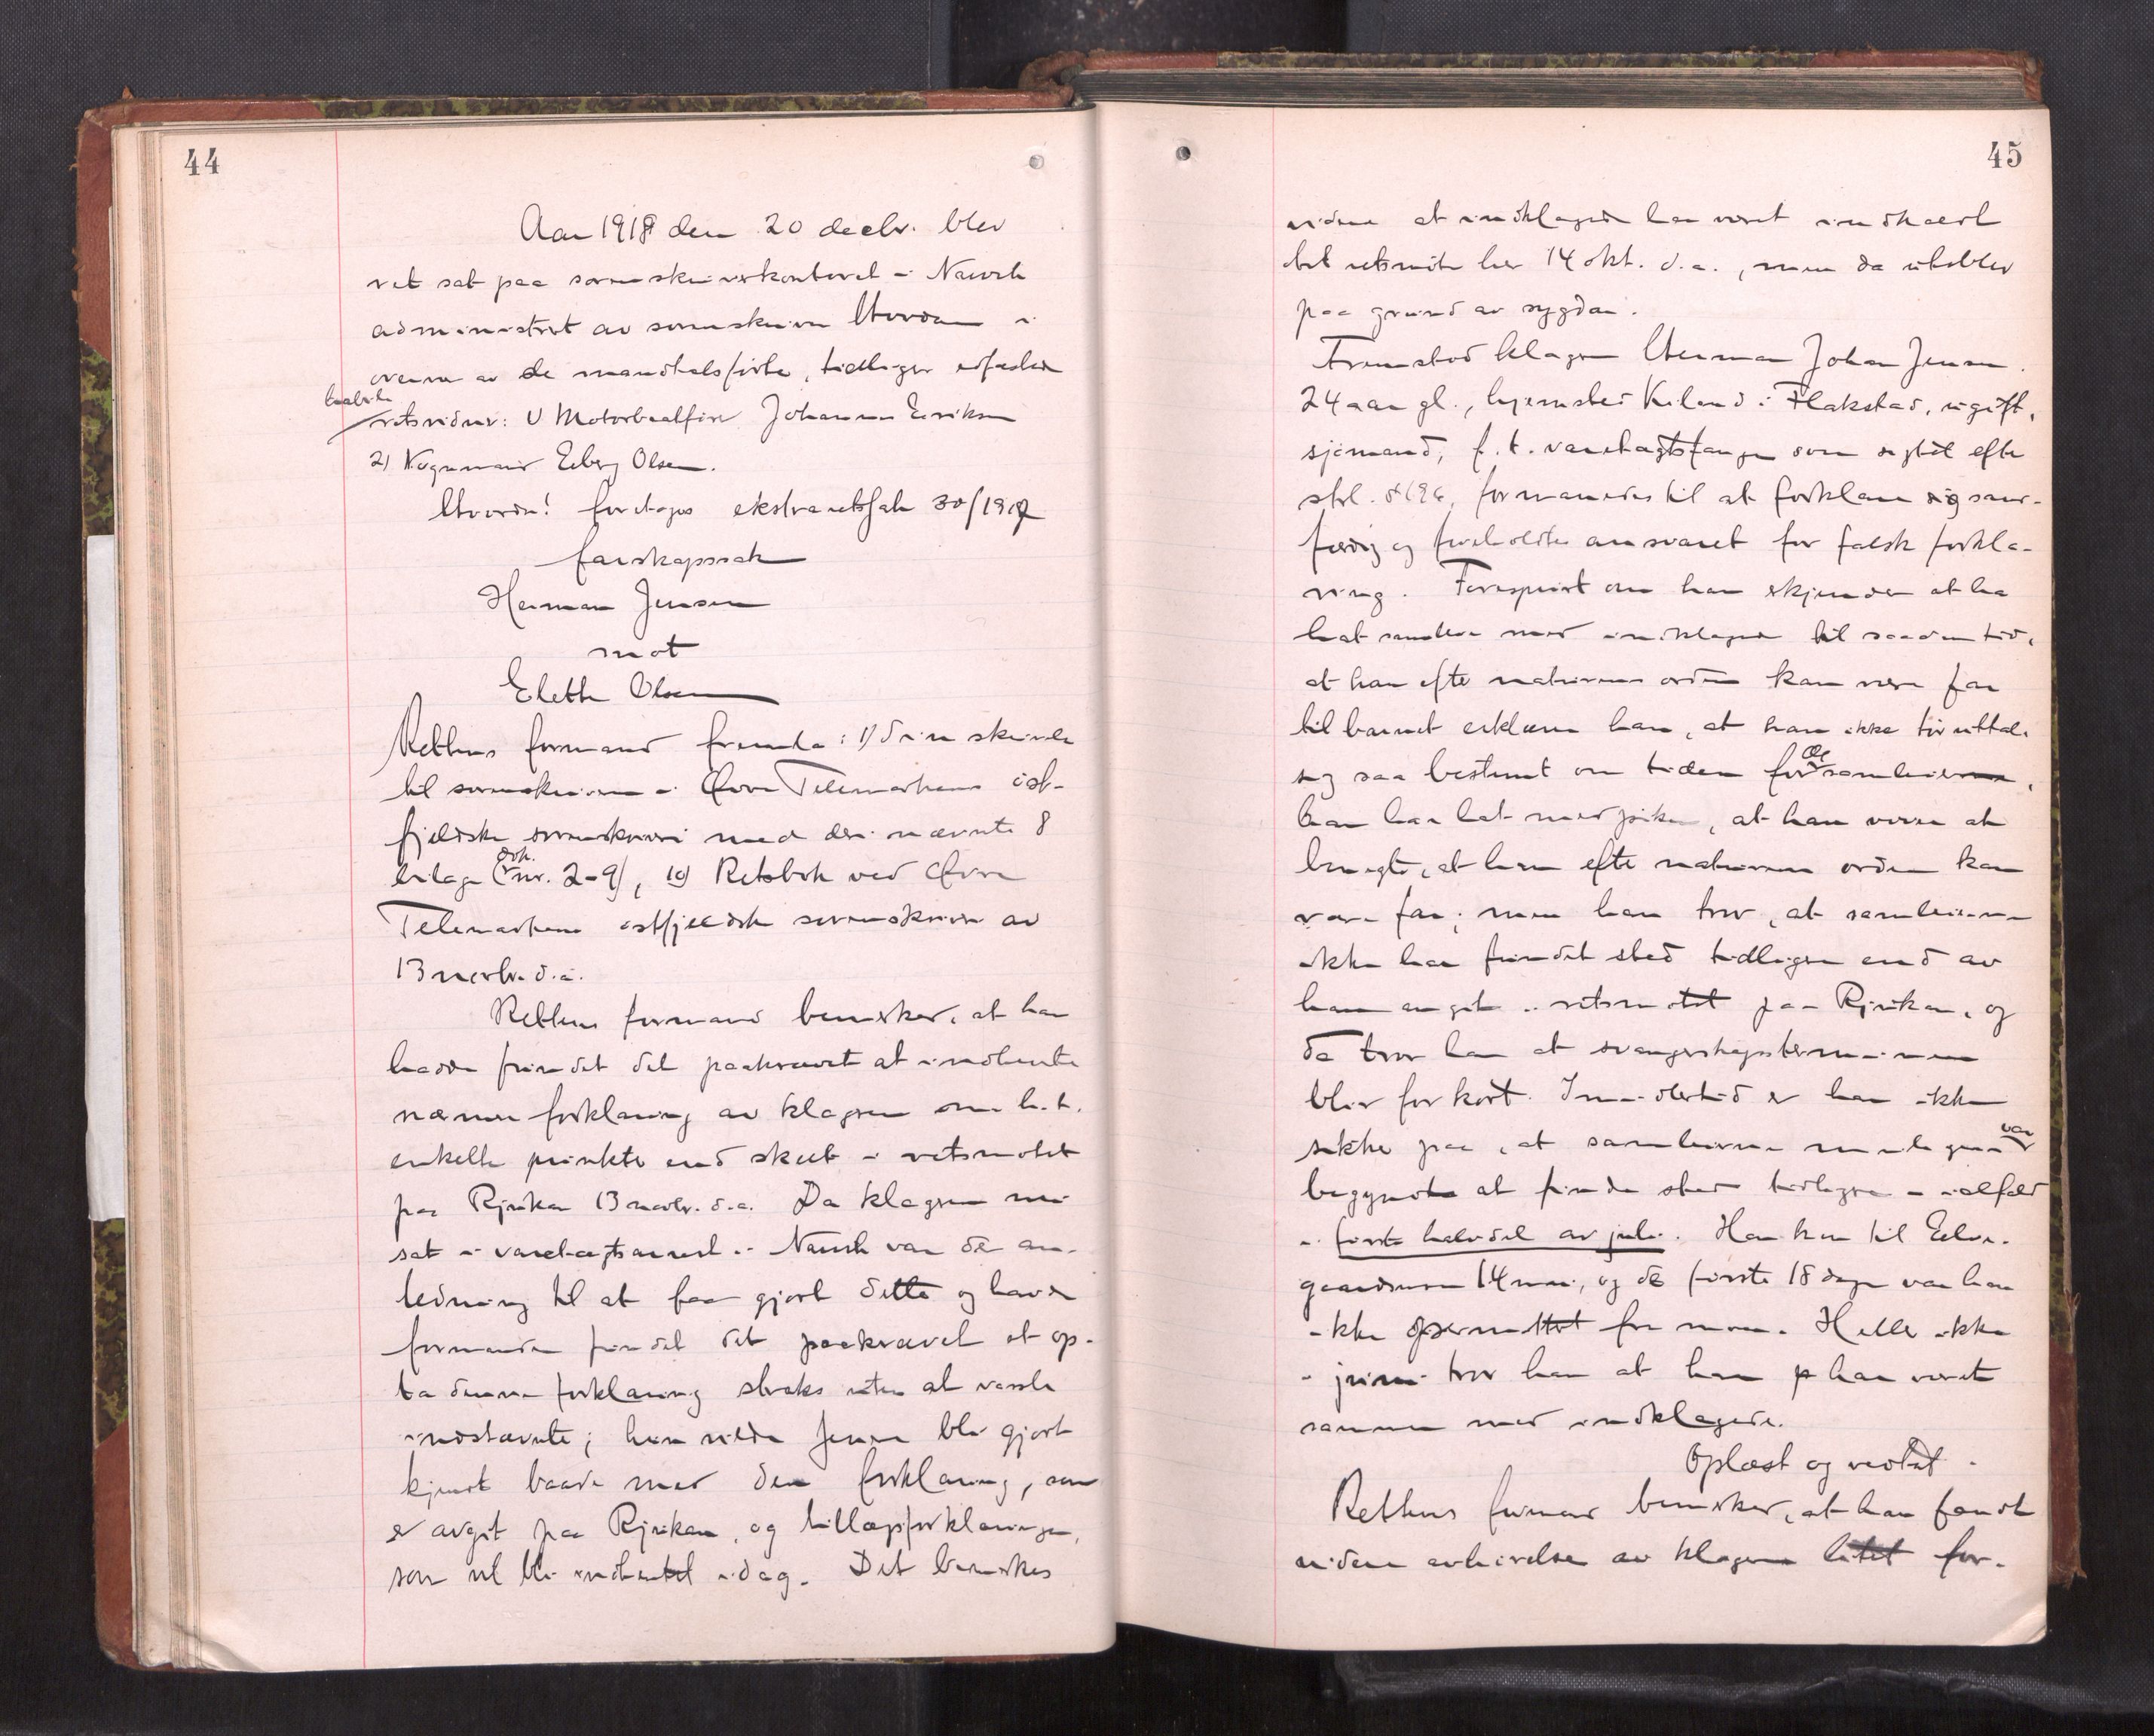 44
Aar 1918 den 20 decbr. blev
ret sat paa sorenskriverkontoret i Narvik
administrert av sorenskriver Hvoven i
overvær av de mandtalsførte, tidligere edfæstede
retsvidner: 1) Motorbaatfører Johannes Eriksen
2) Vognmand Edberg Olsen.
Hvorda! foretages ekstraretssak 30/1917
farskapssak
Herman Jensen
mot
Eleth Olsen
Rettens formand fremla: 1) Sin skrivelse
til sorenskriveren i Øvre Telemarkens øst-
fjeldske sorenskriveri med deri nævnte 8
bilage (dok. nr. 2-9), 10) Retsbok ved Øvre
Telemarkens østfjeldske sorenskriveri av
13 novbr. d.a.
Rettens formand bemerker, at han
hadde fundet det paakrævet at indhente
nærmere forklaring av klageren om h.t.
enkelte punkter end skeet i retsmøtet
paa Rjukan 13 novbr. d.a. Da klageren nu
sat i varetægtsarrest i Narvik var det an-
ledning til at faa gjort dette og havde
formanden fundet det paakrævet at op-
ta denne forklaring straks uten at varsle
indstævnte; hun vilde jo bli gjort
kjendt baade med den forklaring, som
er avgit paa Rjukan, og tillægsforklaringen,
som vil bli indhentet idag. Det bemerkes
45
videre at indklagede har været indkaldt
til retsmøte her 14 okt. d.a., men da utebler
paa grund av sygdom.
Fremstod klageren Herman Johan Jensen.
24 aar gl., hjemsted Kilan i Flakstad, ugift,
sjømand, f. t. varetægtsfange som sigtet efter
strl. § 196, formanedes til at forklare sig sand-
færdig og foreholdtes ansvaret for falsk forkla-
ring. Forespurt om han erkjender at ha
hat samleie med indklagede til saadan tid,
at han efter naturens orden kan være far
til barnet erklærer han, at han ikke tør uttale
sig saa bestemt om tiden for de samleier,
han har hat med piken, at han vover at
benegte, at han efter naturens orden kan
være far; men han tror, at samleierne
ikke har fundet sted tidligere end av
ham angit i retsmøtet paa Rjukan, og
da tror han at svangerskapsterminen
blir for kort. Imidlertid er han ikke
sikker paa, at samleierne muligens var
begyndt at finde sted tidligere – ialfald
i første halvdel av juli. Han kom til
gaardens 14 mai, og de første 18 dage var han
ikke opsermettet for mere. Heller ikke
i juni tror han at han har været
sammen med indklagede.
Oplæst og vedtat.
Rettens formand bemerker, at han fandt
videre avhørelse av klageren litet for-